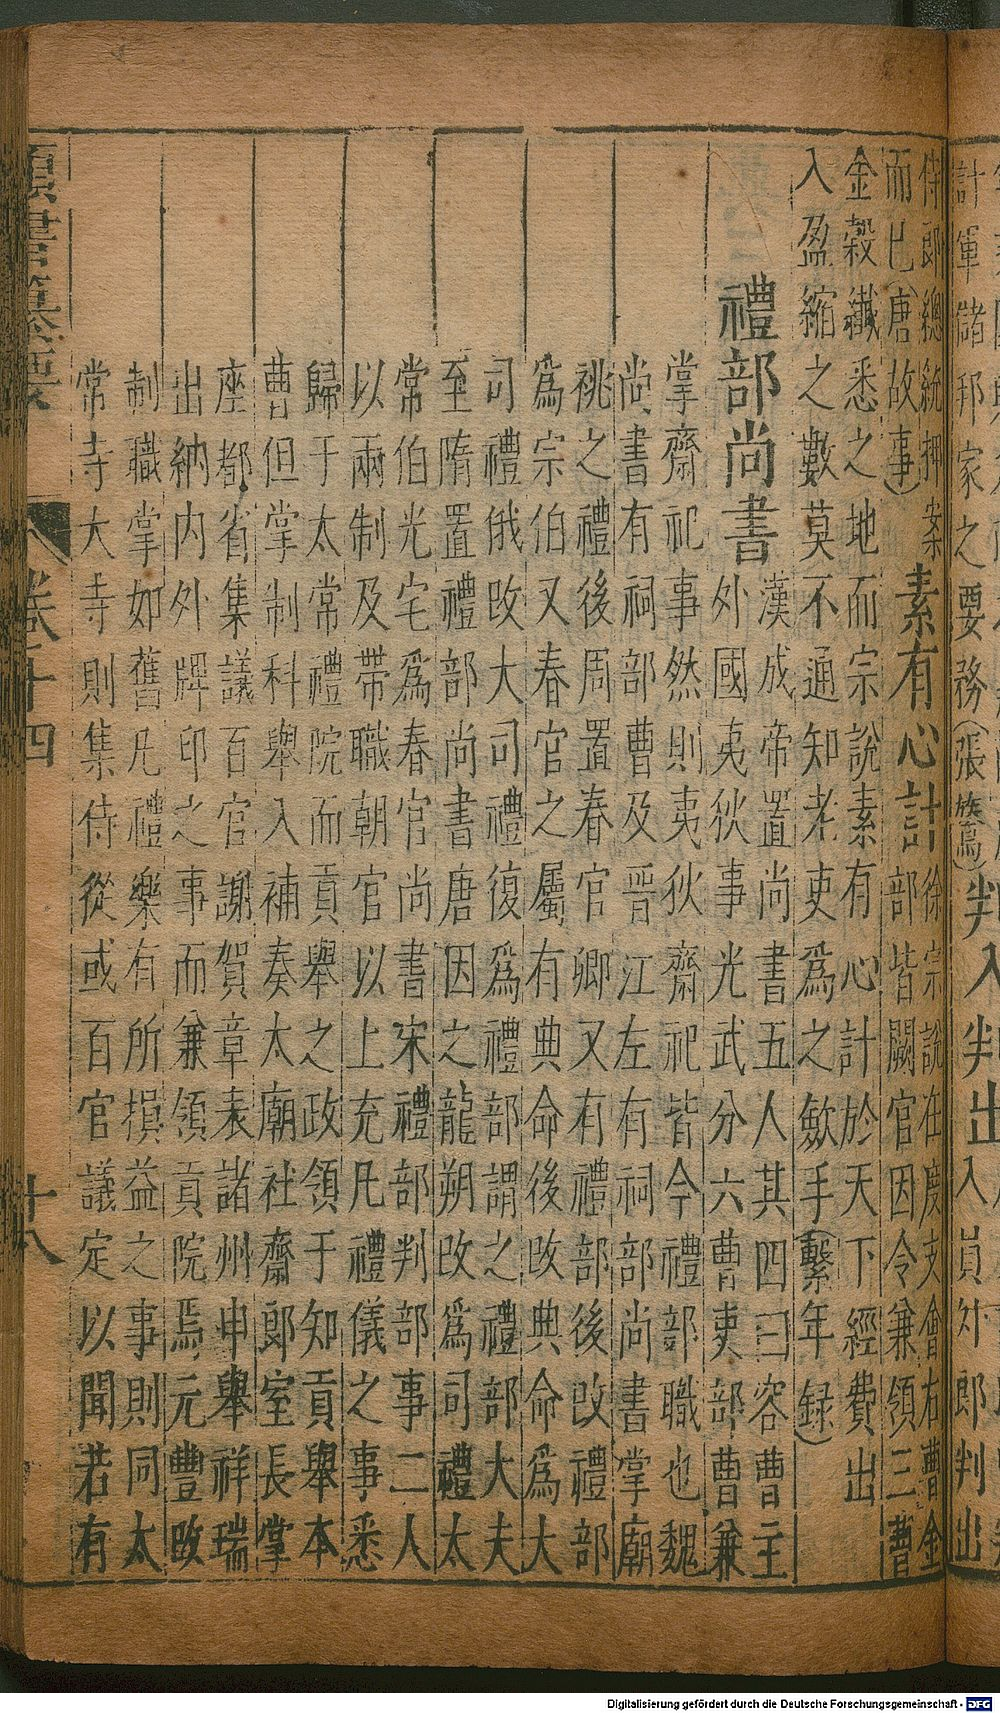 計軍儲邦家之要務
判入判出入員外郎判出
侍郎總統押案
而已(唐故事)
素有心計
徐宗說在度支會右曹金
部皆闕官因令兼領三曹
金穀纖悉之地而宗說素有心計於天下經費出
入盈縮之數莫不通知老吏爲之斂手(繫年録)
禮部尚書
漢成帝置尚書五人其四曰客曹主
外國夷狄事光武分六曹吏部曹兼
掌齋祀事然則夷狄齋祀皆今禮部職也魏
尚書有祠部曹及晉江左有祠部尚書掌廟
祧之禮後周置春官卿又有禮部後改禮部
爲宗伯又春官之屬有典命後改典命爲大
司禮俄改大司禮復爲禮部謂之禮部大夫
至隋置禮部尚書唐因之龍朔改爲司禮太
常伯光宅爲春官尚書宋禮部判部事二人
以兩制及帶職朝官以上充凡禮儀之事悉
歸于太常禮院而貢舉之政領于知貢舉本
曹但掌制科舉入補奏太廟社齋郎室長掌
座都省集議百官謝賀章表諸州申舉祥瑞
出納内外牌印之事而兼領貢院焉元豐改
制職掌如舊凡禮樂有所損益之事則同太
常寺大寺則集侍從或百官議定以聞若有
類書纂要 卷十四 十八
Digitalisierung gefördert durch die Deutsche Forschungsgemeinschaft - DFG